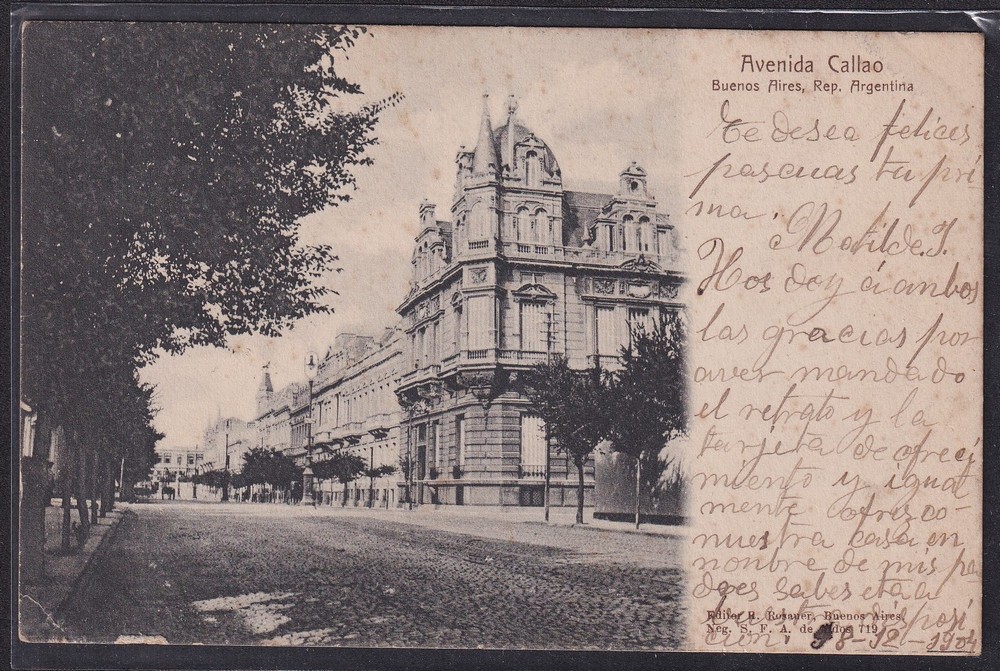 Avenida Callao
Buenos Aires, Rep. Argentina
Te deseo felices
pascuas tu pri
ma.
Matilde. J.
Hos doy á ambos
las gracias por
aver mandado
el retrato y la
tarjeta de ofreci
miento y igual
mente ofrezco
nuestra casa en
nonbre de mis pa
dres sabes etá a
Editor R. Rosauer, Buenos Aires,
disposi
Neg. S. F. A. de Fdos 719
cion. 18-12-1904